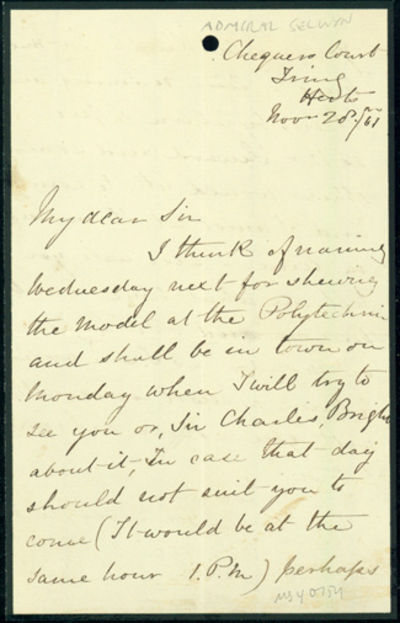 ADMIRAL SELWYN
Chequers Court
Tring
Herts
Novr 28th/61
My dear Sir
I think of naming
Wednesday next for shewing
the model at the Polytechnic
and shall be in town on
Monday when I will try to
see you or, Sir Charles, Bright
about it, In case that day
should not suit you to
come (It would be at the
same hour 1.P.M) perhaps